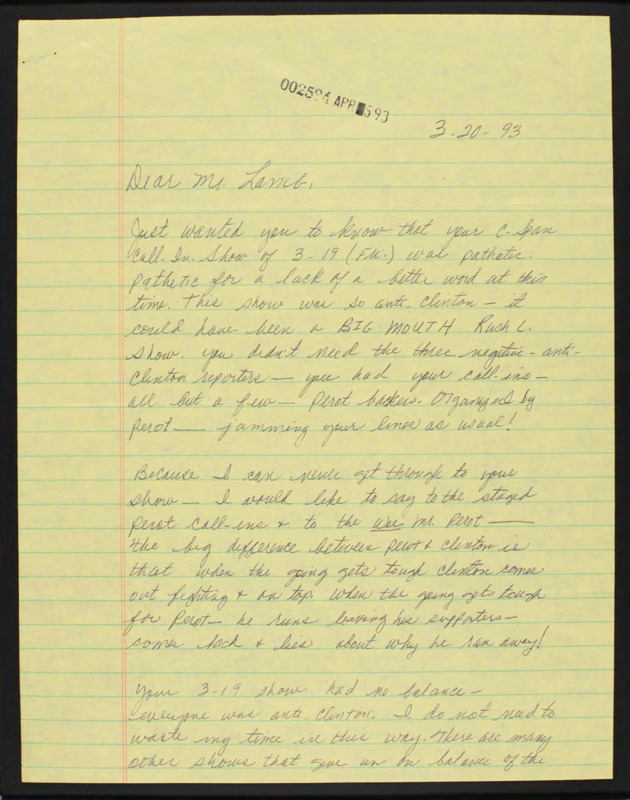 002594 APR 5 93
3-20-93
Dear Mr. Lamb,
Just wanted you to know that your C-Span
Call-In-Show of 3-19 (Fri.) was pathetic.
Pathetic for a lack of a better word at this
time. This show was so anti-Clinton — it
could have been a BIG MOUTH Rush L.
Show. You didn't need the three negative-anti-
Clinton reporters — you had your call-ins —
all but a few — Perot backers. Organized by
Perot — jamming your lines as usual!
Because I can never get through to your
show — I would like to say to the staged
Perot call-ins & to the wee Mr. Perot —
the big difference between Perot & Clinton is
that when the going gets tough Clinton comes
out fighting & on top. When the going gets tough
for Perot — he runs leaving his supporters —
comes back & lies about why he ran away!
Your 3-19 show had no balance —
everyone was anti-Clinton. I do not need to
waste my time in this way. There are many
other shows that give an on balance of the